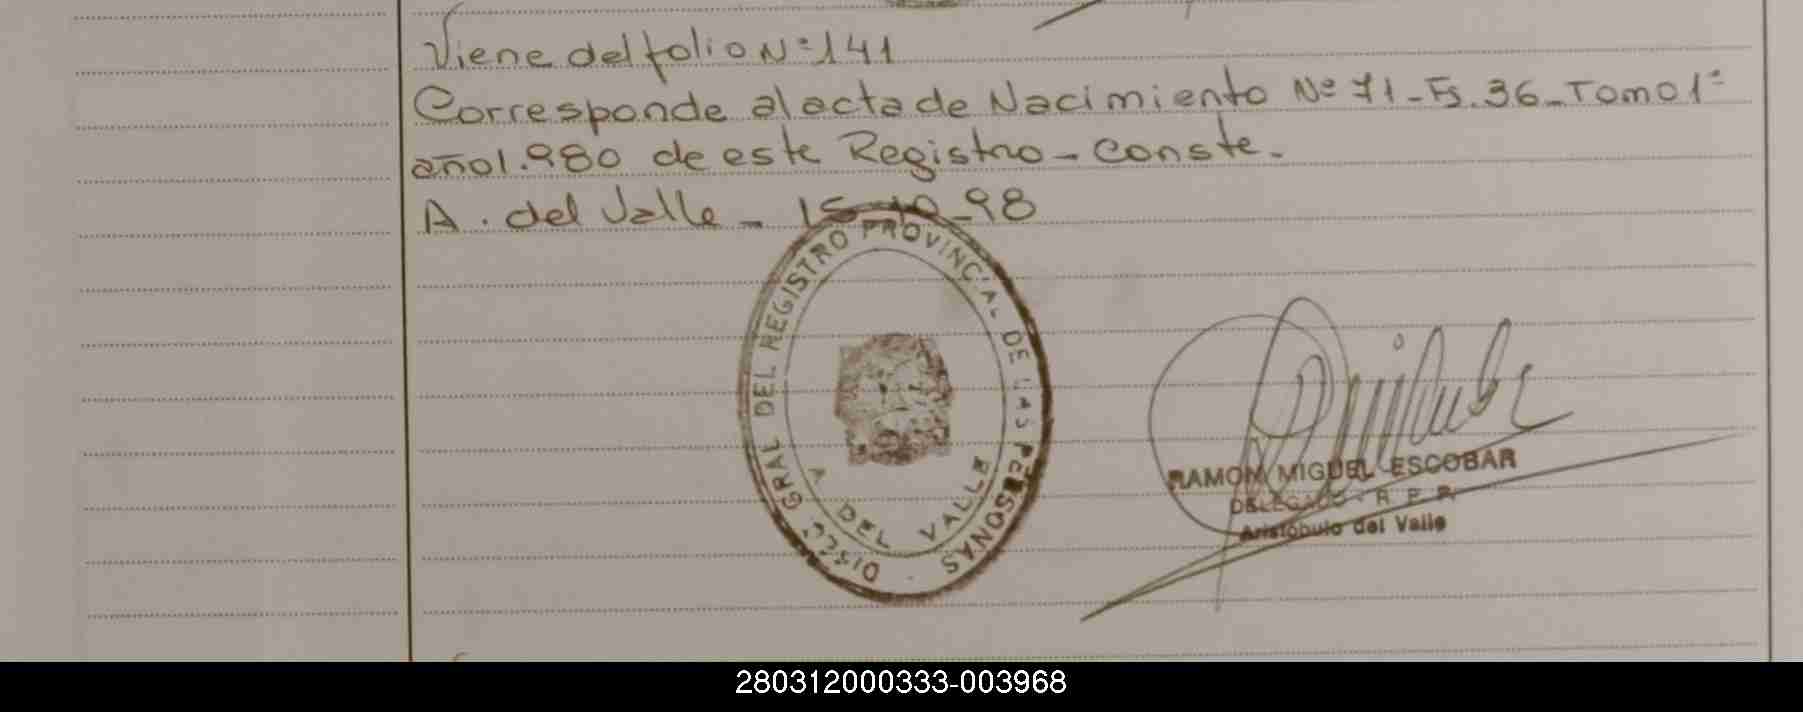 Viene del folio Nº 141
Corresponde al acta de Nacimiento Nº 71 - Fs. 36 - Tomo 1º
año 1.980 de este Registro - Conste.
A. del Valle - 15-10-98
DIREC. GRAL DEL REGISTRO PROVINCIAL DE LAS PERSONAS
A DEL VALLE
RAMON MIGUEL ESCOBAR
DELEGADO R. P. P.
Aristóbulo del Valle
280312000333-003968